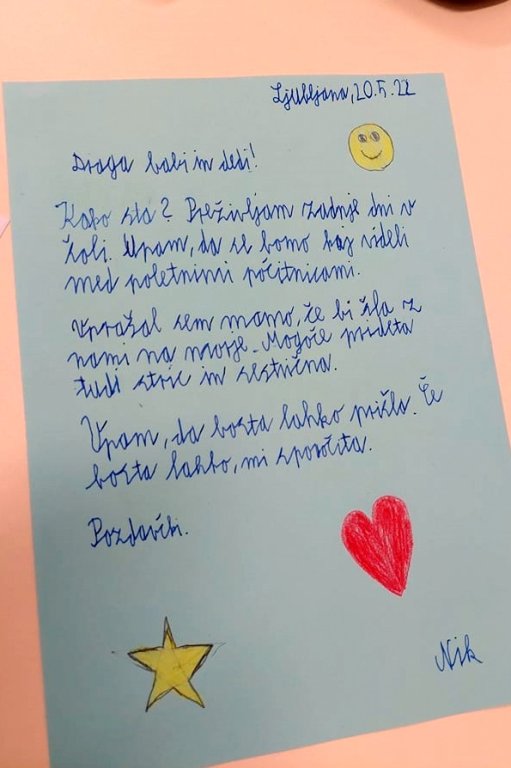 Ljubljana, 20.5.22
Draga babi in dedi!
Kako sta? Preživljam zadnje dni v
šoli. Upam, da se bomo kaj videli
med poletnimi počitnicami.
Vprašal sem mamo, če bi šla z
nami na morje. Mogoče prideta
tudi stric in sestrična.
Upam, da bosta lahko prišla. Če
bosta lahko, mi sporočita.
Pozdavčki.
Nik